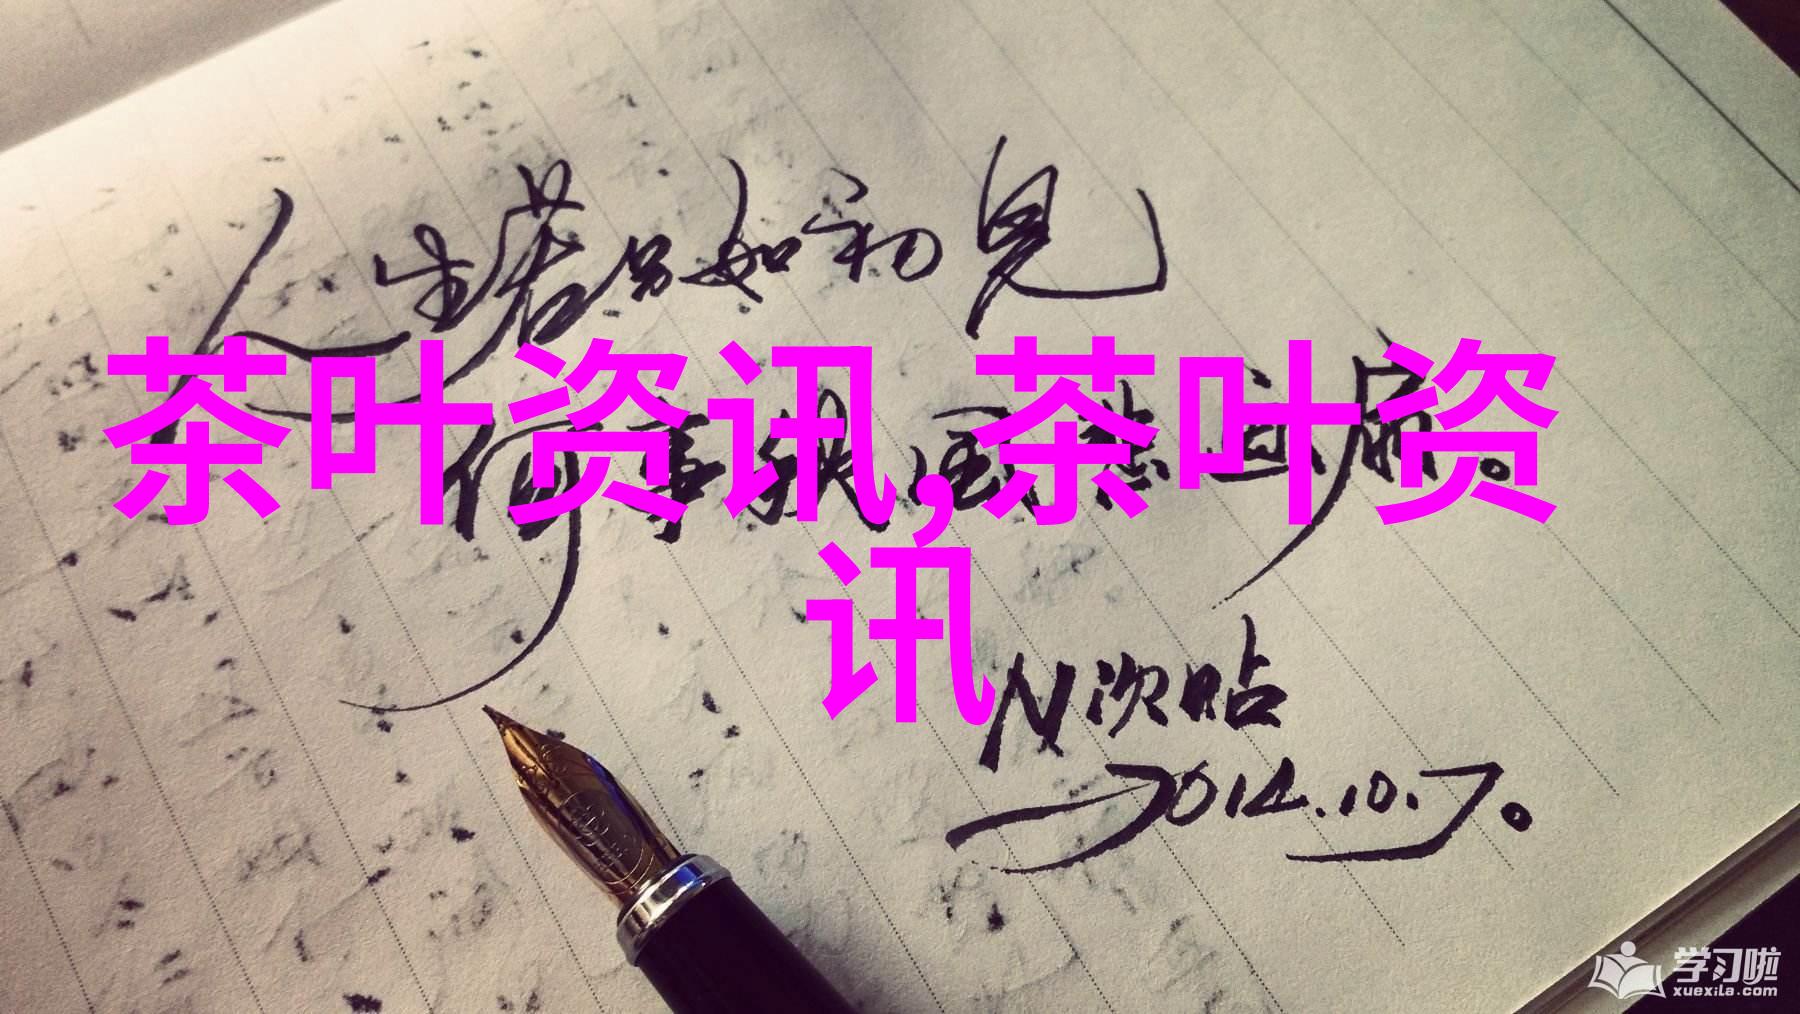 人生若只如初见
何事秋风悲画扇。
茶叶资讯,茶叶资
讯
N次贴
2014.10.7。
学习啦
xuexila.com